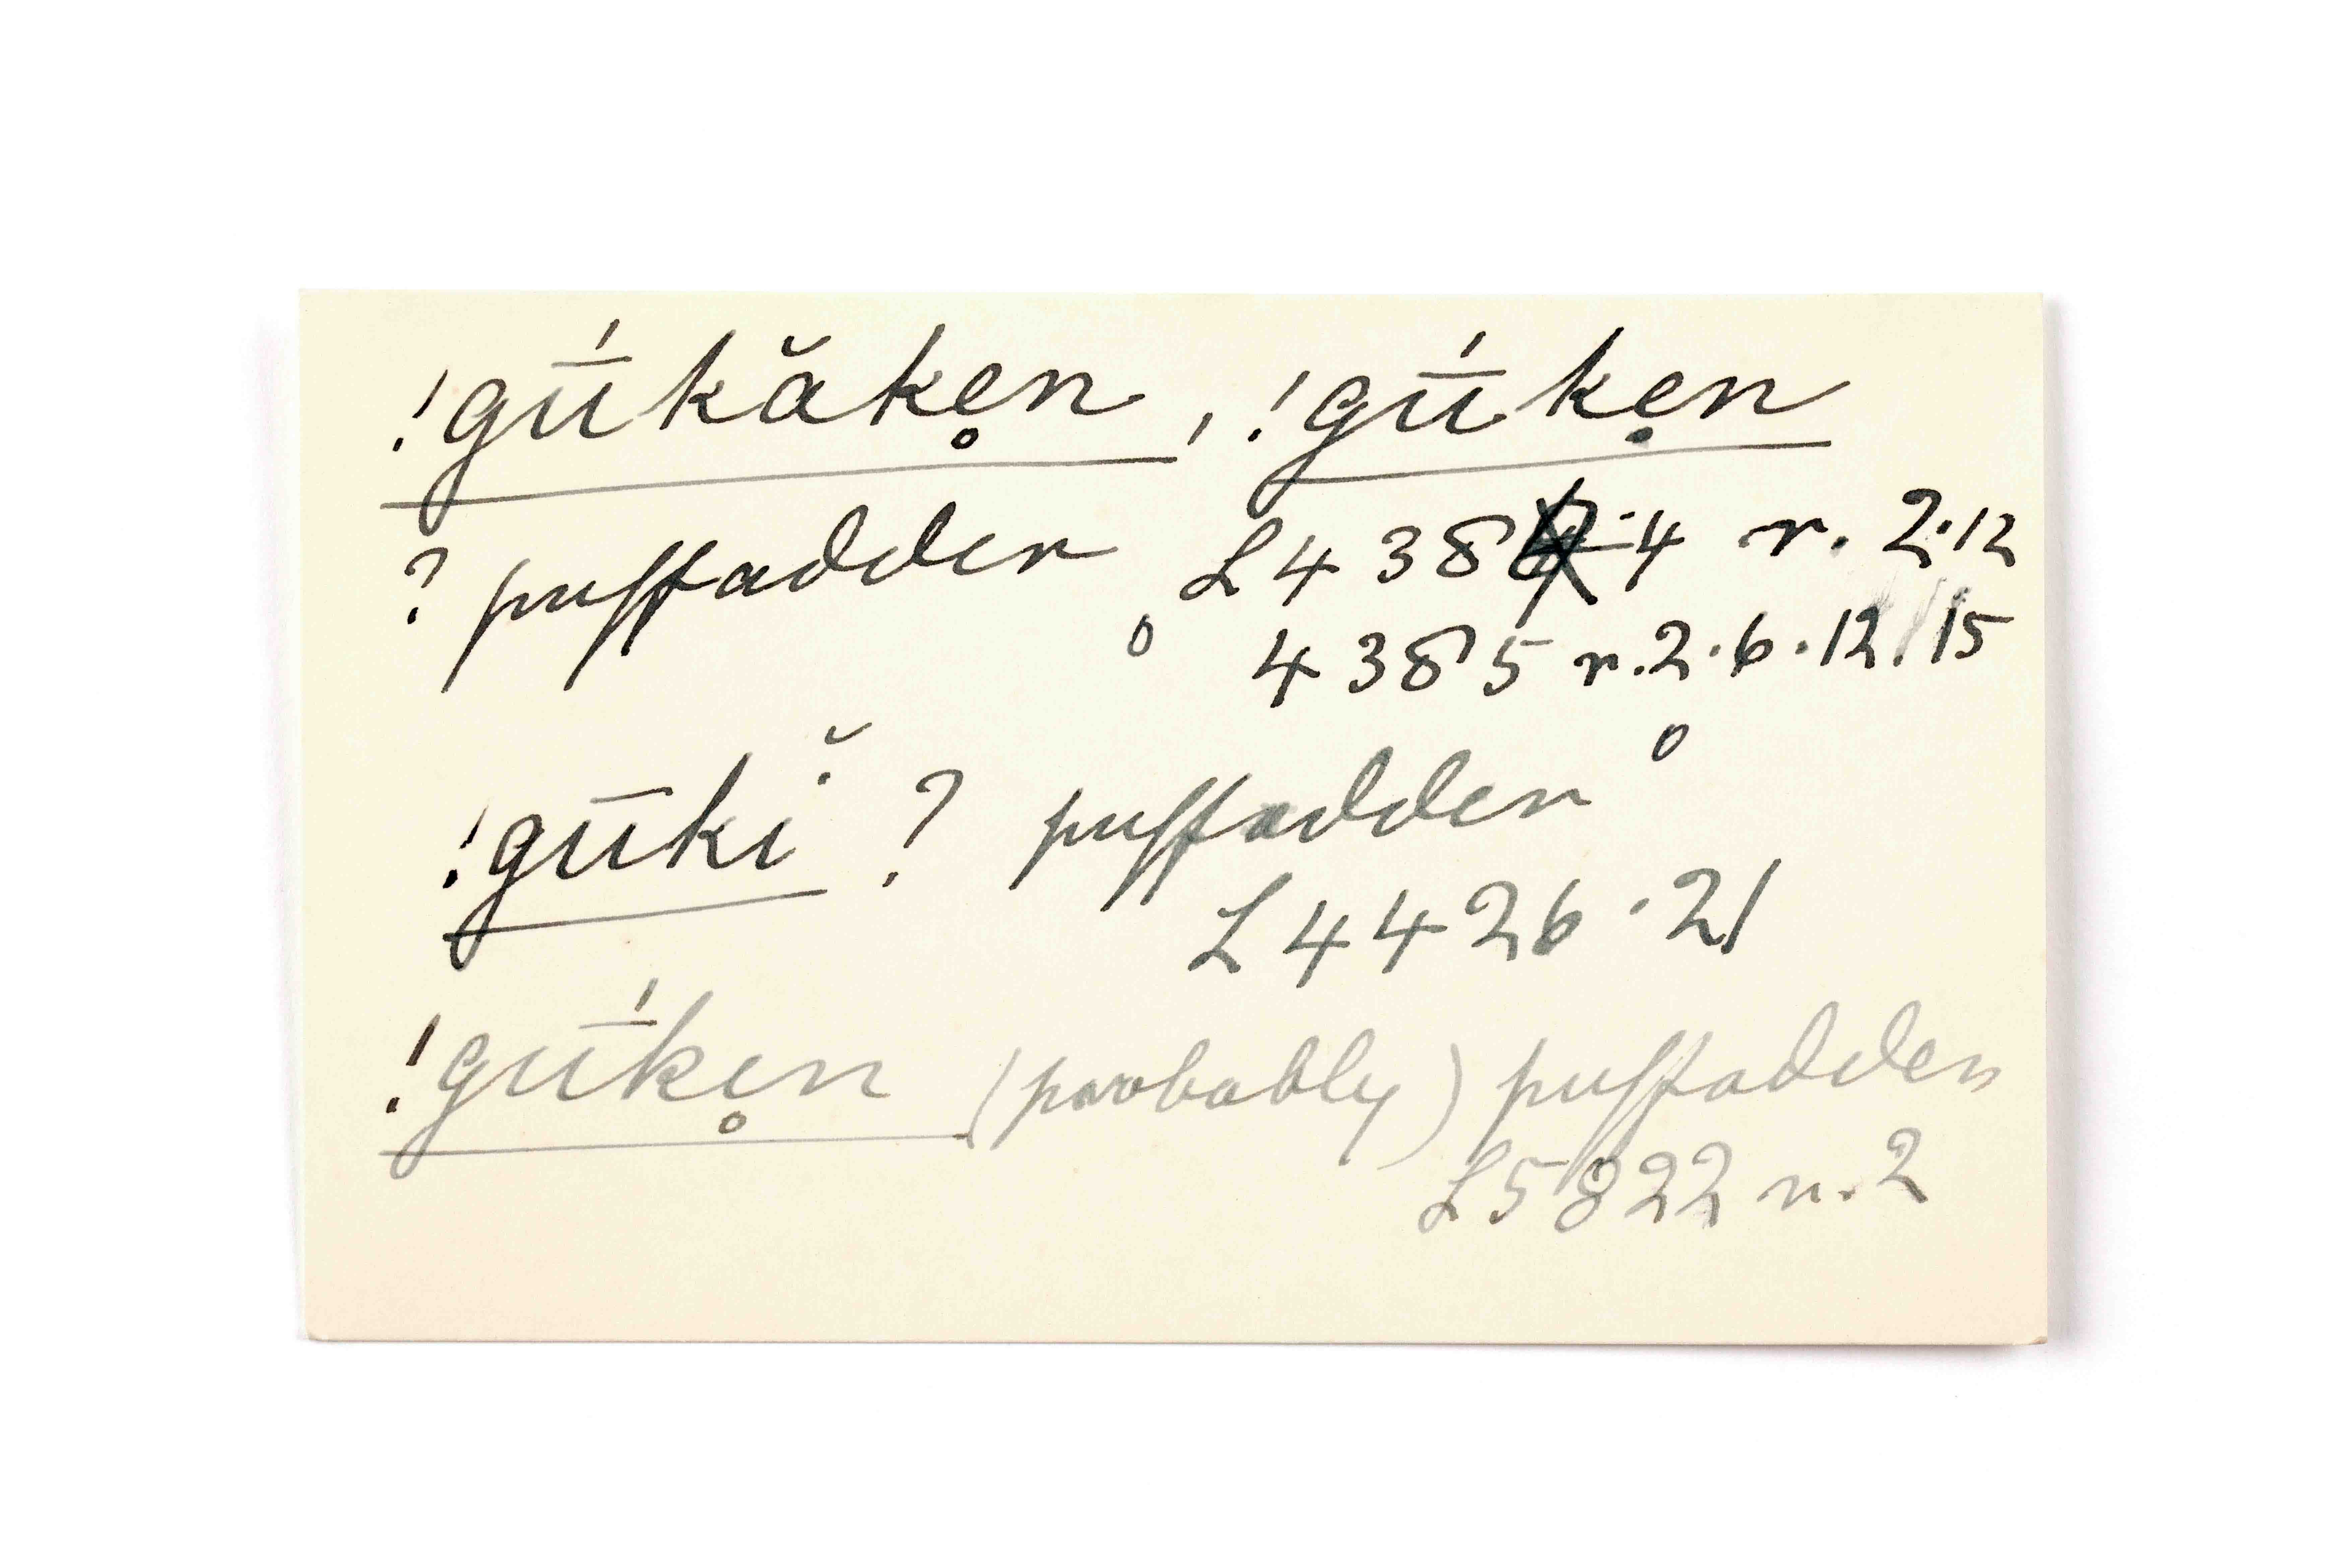 !gū́kăke̥n, !gū́ke̥n
? puffadder L 438 4 r. 2·12
4385 r. 2·6·12.15
!gūkĭ ? puffadder
L 4426·21
!gū́ke̥n (probably) puffadder
L5822 r. 2